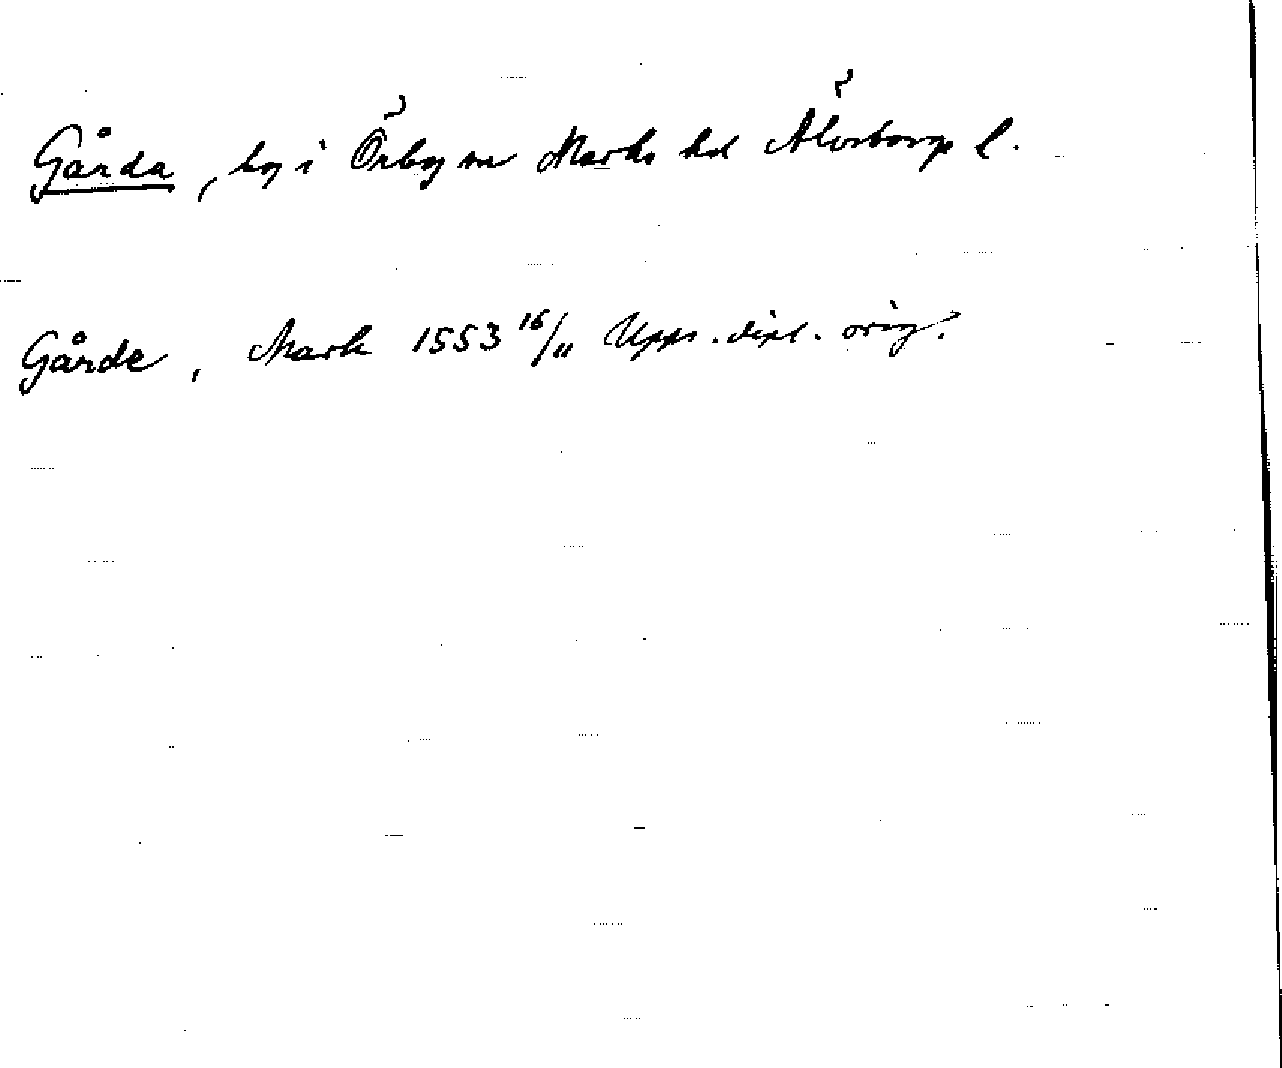 Gårda, by i Örby sn Marks hd Älvsborgs l.
Gårde, Mark 1553 16/11 Upps. dipl. orig.